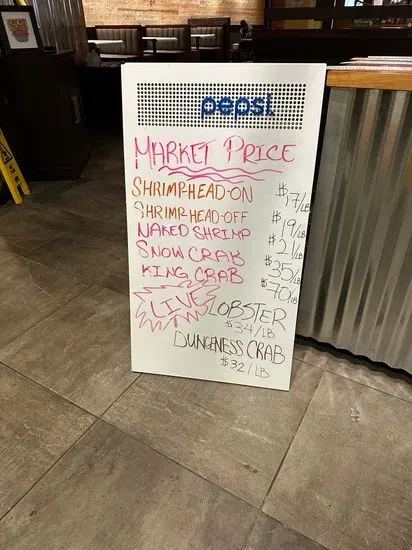 pepsi
MARKET PRICE
SHRIMP-HEAD-ON $17/LB
SHRIMP-HEAD-OFF $19/LB
NAKED SHRIMP $21/LB
SNOW CRAB $35/LB
KING CRAB $70/LB
LIVE LOBSTER
$34/LB
DUNGENESS CRAB
$32/LB